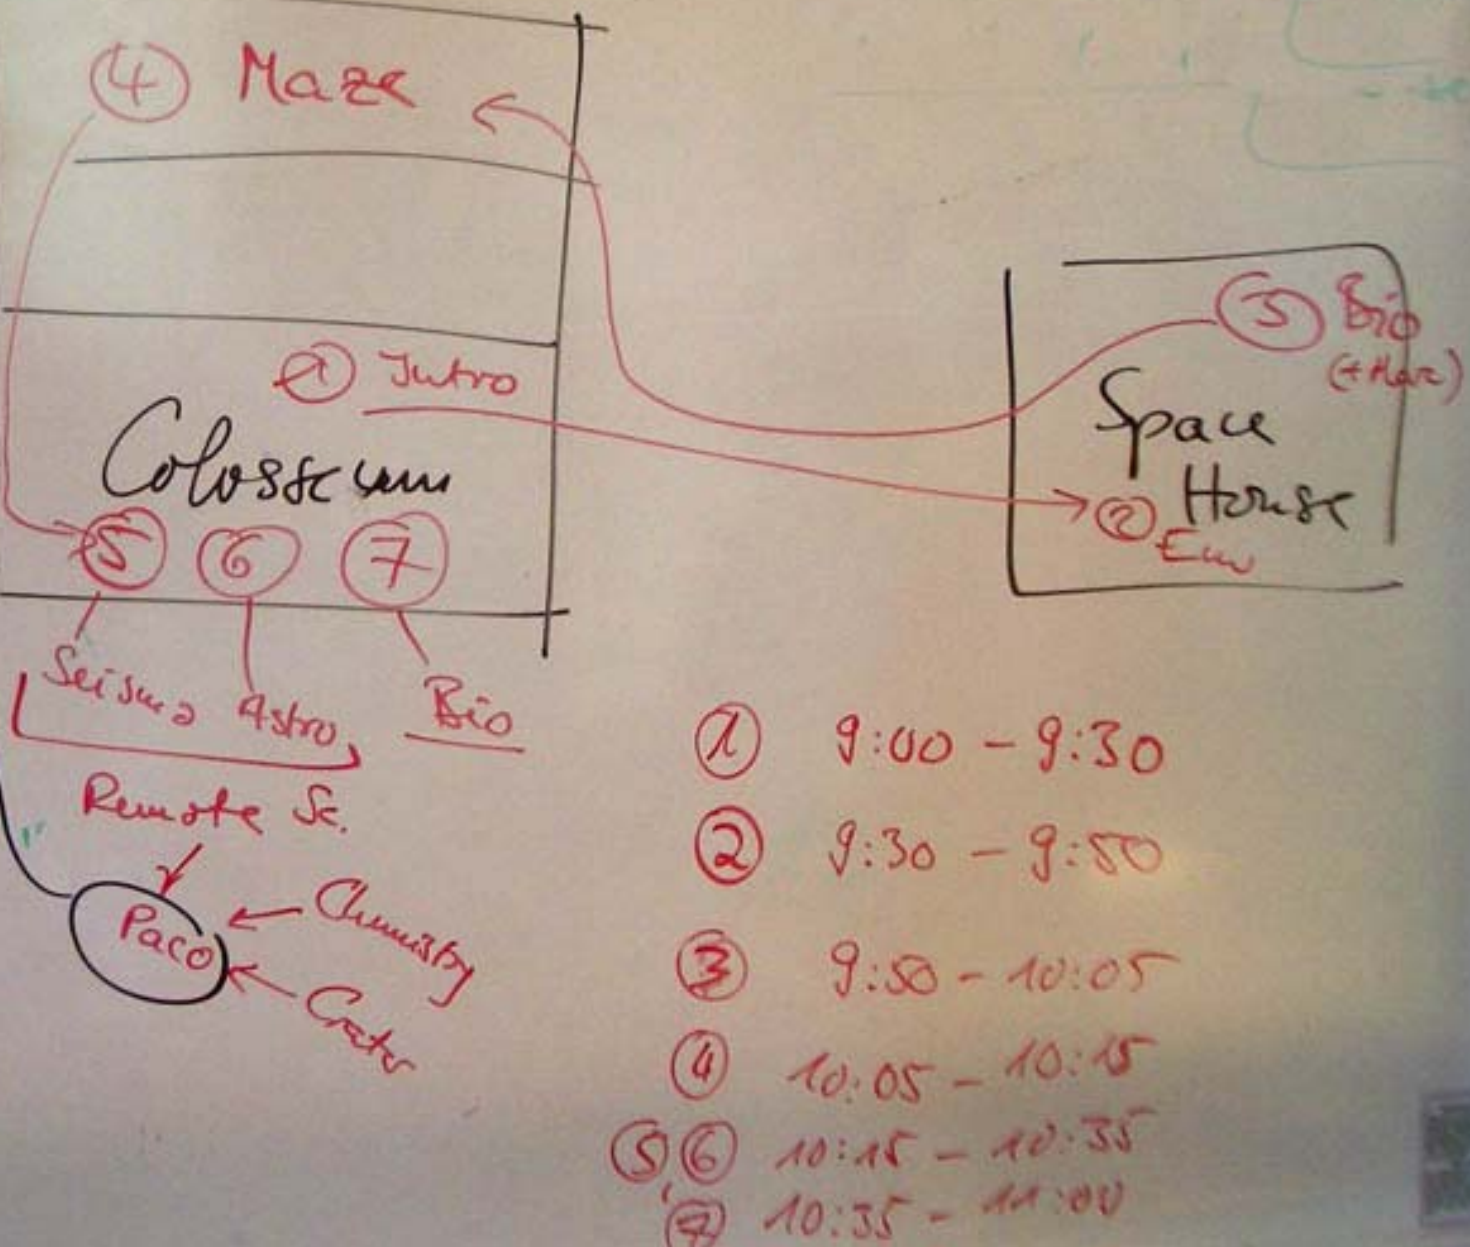 ④ Maze
① Intro
Colosseum
⑤ ⑥ ⑦
Seismo Astro,
Bio
Remote Sc.
Paco
Chemistry
Crater
③ Bio
Space
House
② Env
① 9:00 - 9:30
② 9:30 - 9:50
③ 9:50 - 10:05
④ 10:05 - 10:15
⑤,⑥ 10:15 - 10:35
⑦ 10:35 - 11:00